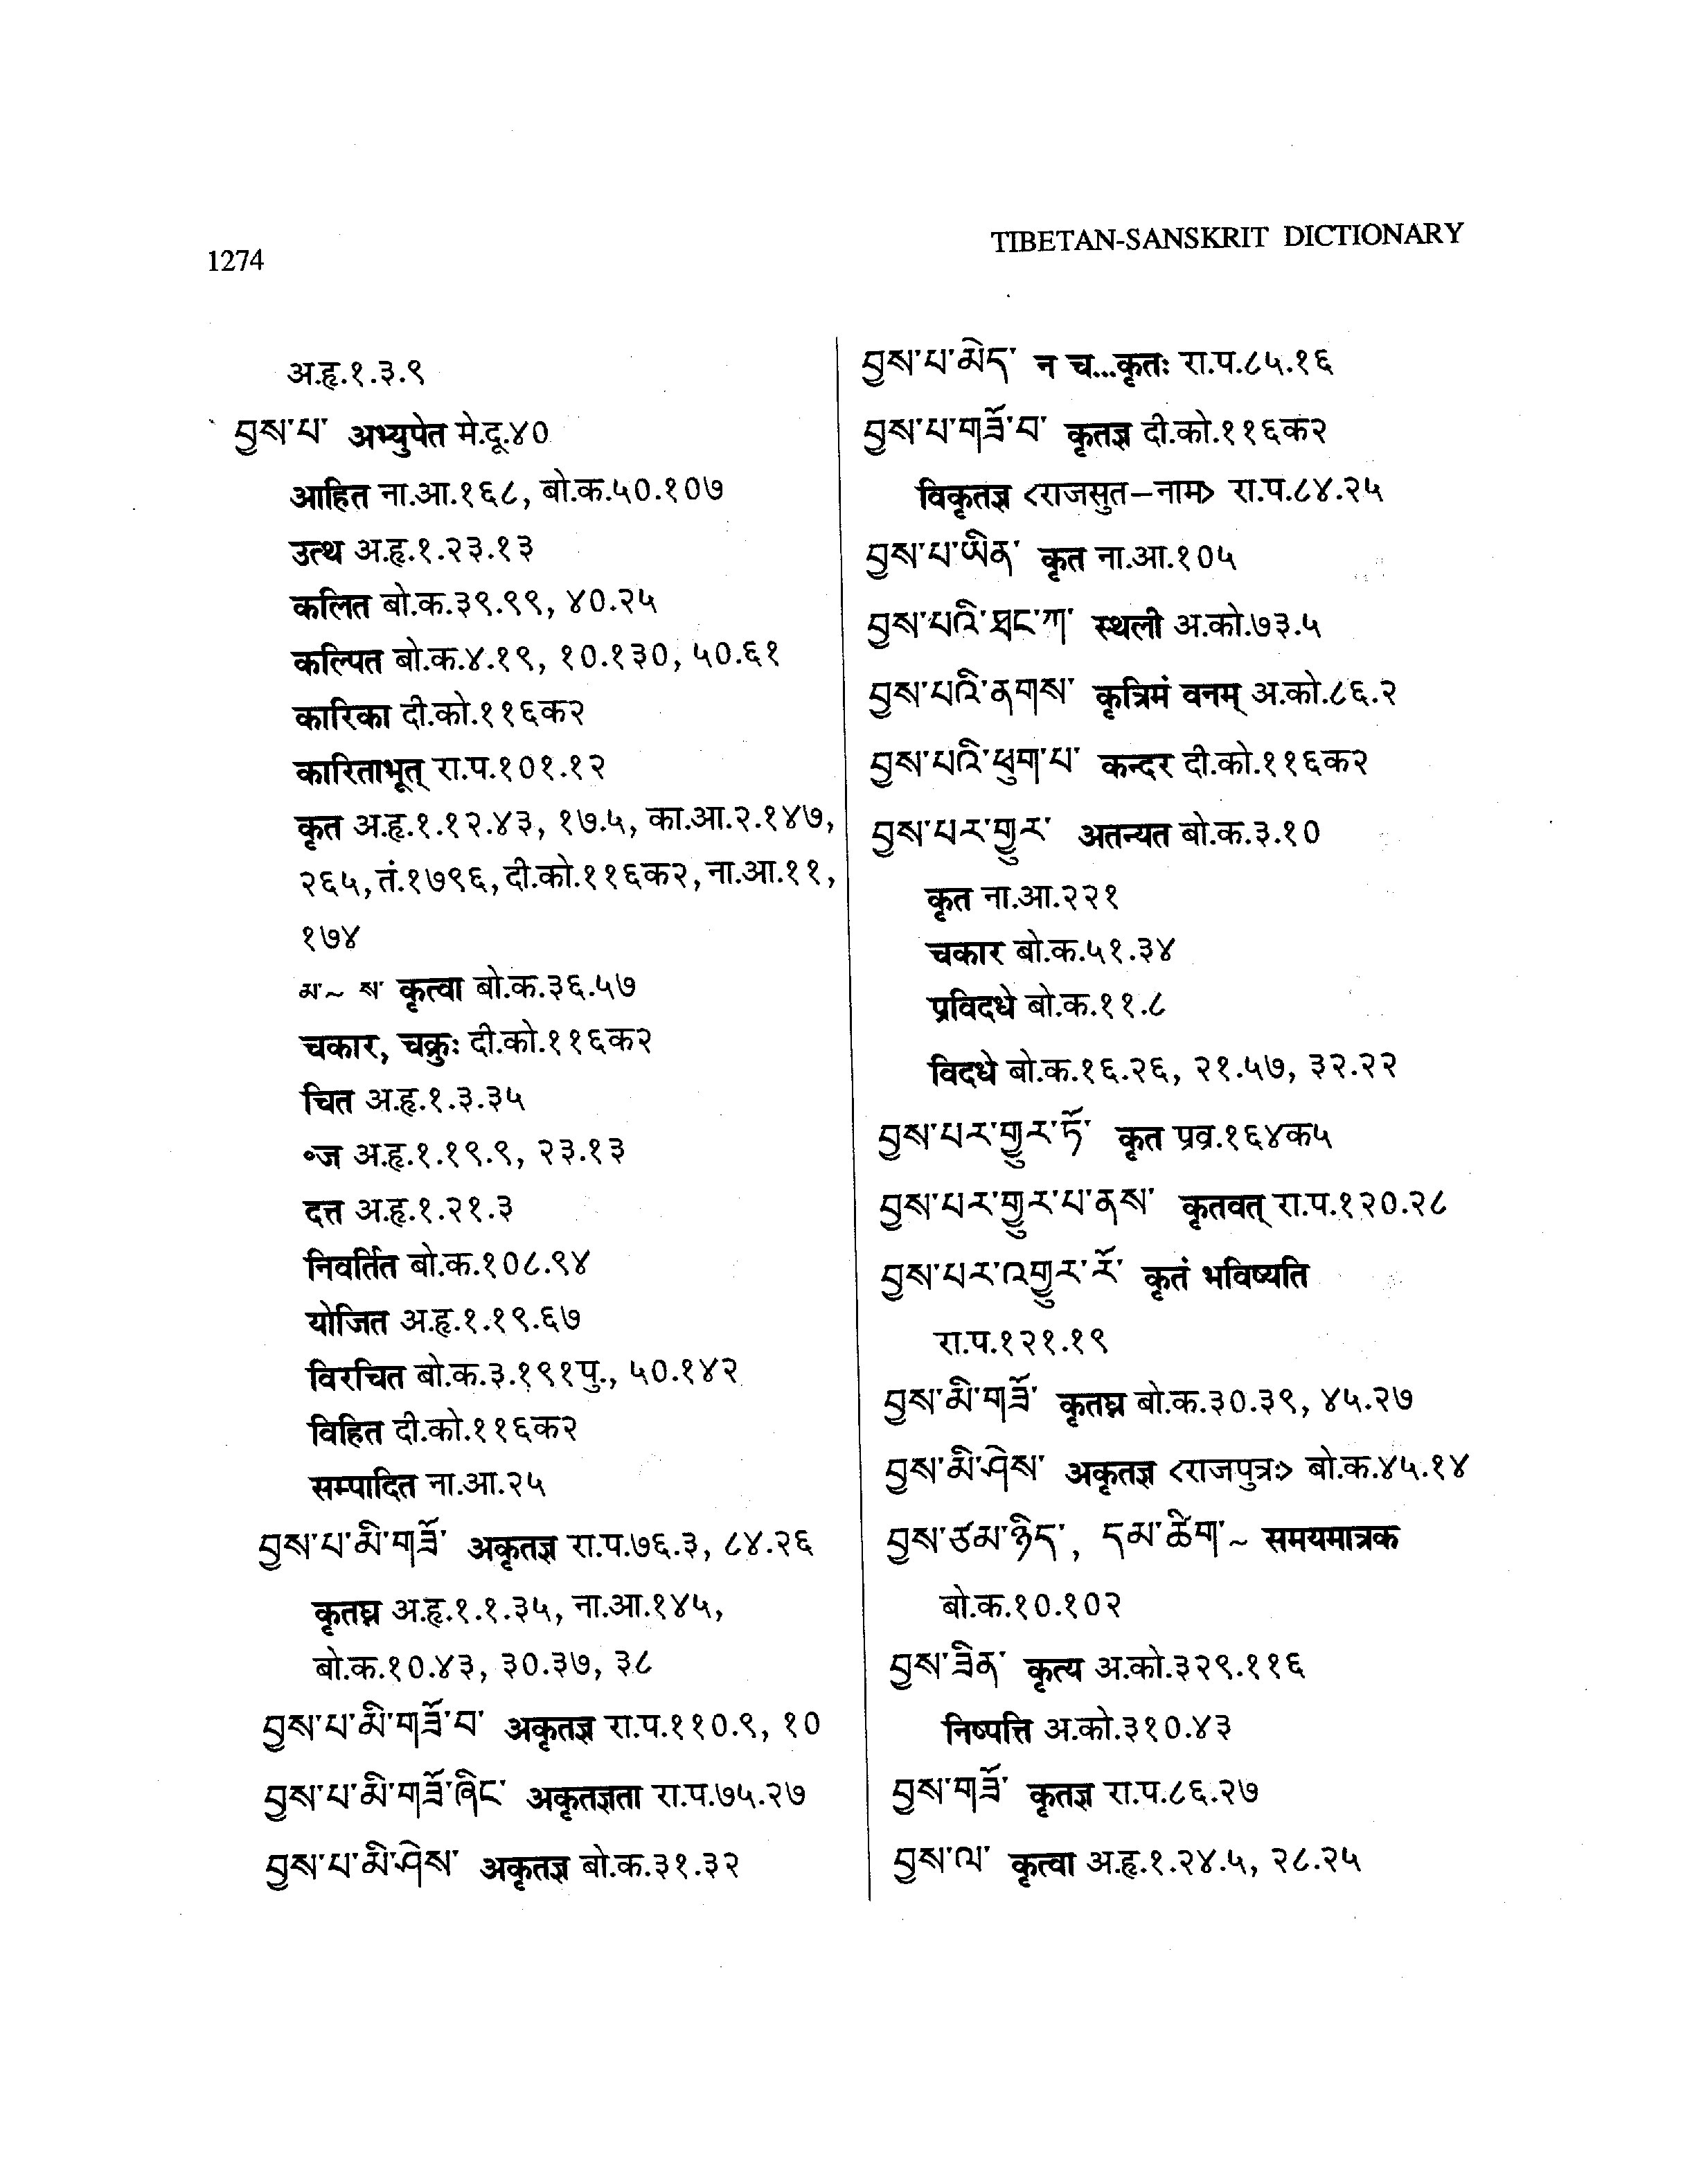 1274
TIBETAN-SANSKRIT DICTIONARY
अ.हृ.१.३.९
བྱས་པ་ अभ्युपेत मे.दू.४०
आहित ना.आ.१६८, बो.क.५०.१०७
उत्थ अ.हृ.१.२३.१३
कलित बो.क.३९.९९, ४०.२५
कल्पित बो.क.४.१९, १०.१३०, ५०.६१
कारिका दी.को.११६क२
कारिताभूत् रा.प.१०१.१२
कृत अ.हृ.१.१२.४३, १७.५, का.आ.२.१४७,
२६५, तं.१७९६, दी.को.११६क२, ना.आ.११,
१७४
མ་~ ས་ कृत्वा बो.क.३६.५७
चकार, चक्रुः दी.को.११६क२
चित अ.हृ.१.३.३५
॰ज अ.हृ.१.१९.९, २३.१३
दत्त अ.हृ.१.२१.३
निवर्तित बो.क.१०८.९४
योजित अ.हृ.१.१९.६७
विरचित बो.क.३.१९१पु., ५०.१४२
विहित दी.को.११६क२
सम्पादित ना.आ.२५
བྱས་པ་མི་གཟོ་ अकृतज्ञ रा.प.७६.३, ८४.२६
कृतघ्न अ.हृ.१.१.३५, ना.आ.१४५,
बो.क.१०.४३, ३०.३७, ३८
བྱས་པ་མི་གཟོ་བ་ अकृतज्ञ रा.प.११०.९, १०
བྱས་པ་མི་གཟོ་ཞིང་ अकृतज्ञता रा.प.७५.२७
བྱས་པ་མི་ཤེས་ अकृतज्ञ बो.क.३१.३२
བྱས་པ་མེད་ न च...कृतः रा.प.८५.१६
བྱས་པ་གཟོ་བ་ कृतज्ञ दी.को.११६क२
विकृतज्ञ <राजसुत-नाम> रा.प.८४.२५
བྱས་པ་ཡིན་ कृत ना.आ.१०५
བྱས་པའི་ཐང་ཀ་ स्थली अ.को.७३.५
བྱས་པའི་ནགས་ कृत्रिमं वनम् अ.को.८६.२
བྱས་པའི་ཕུག་པ་ कन्दर दी.को.११६क२
བྱས་པར་གྱུར་ अतन्यत बो.क.३.१०
कृत ना.आ.२२१
चकार बो.क.५१.३४
प्रविदधे बो.क.११.८
विदधे बो.क.१६.२६, २१.५७, ३२.२२
བྱས་པར་གྱུར་ཏོ་ कृत प्रव्र.१६४क५
བྱས་པར་གྱུར་པ་ནས་ कृतवत् रा.प.१२०.२८
བྱས་པར་འགྱུར་རོ་ कृतं भविष्यति
रा.प.१२१.१९
བྱས་མི་གཟོ་ कृतघ्न बो.क.३०.३९, ४५.२७
བྱས་མི་ཤེས་ अकृतज्ञ <राजपुत्रः> बो.क.४५.१४
བྱས་ཙམ་ཉིད་, དམ་ཚིག་~ समयमात्रक
बो.क.१०.१०२
བྱས་ཟིན་ कृत्य अ.को.३२९.११६
निष्पत्ति अ.को.३१०.४३
བྱས་གཟོ་ कृतज्ञ रा.प.८६.२७
བྱས་ལ་ कृत्वा अ.हृ.१.२४.५, २८.२५